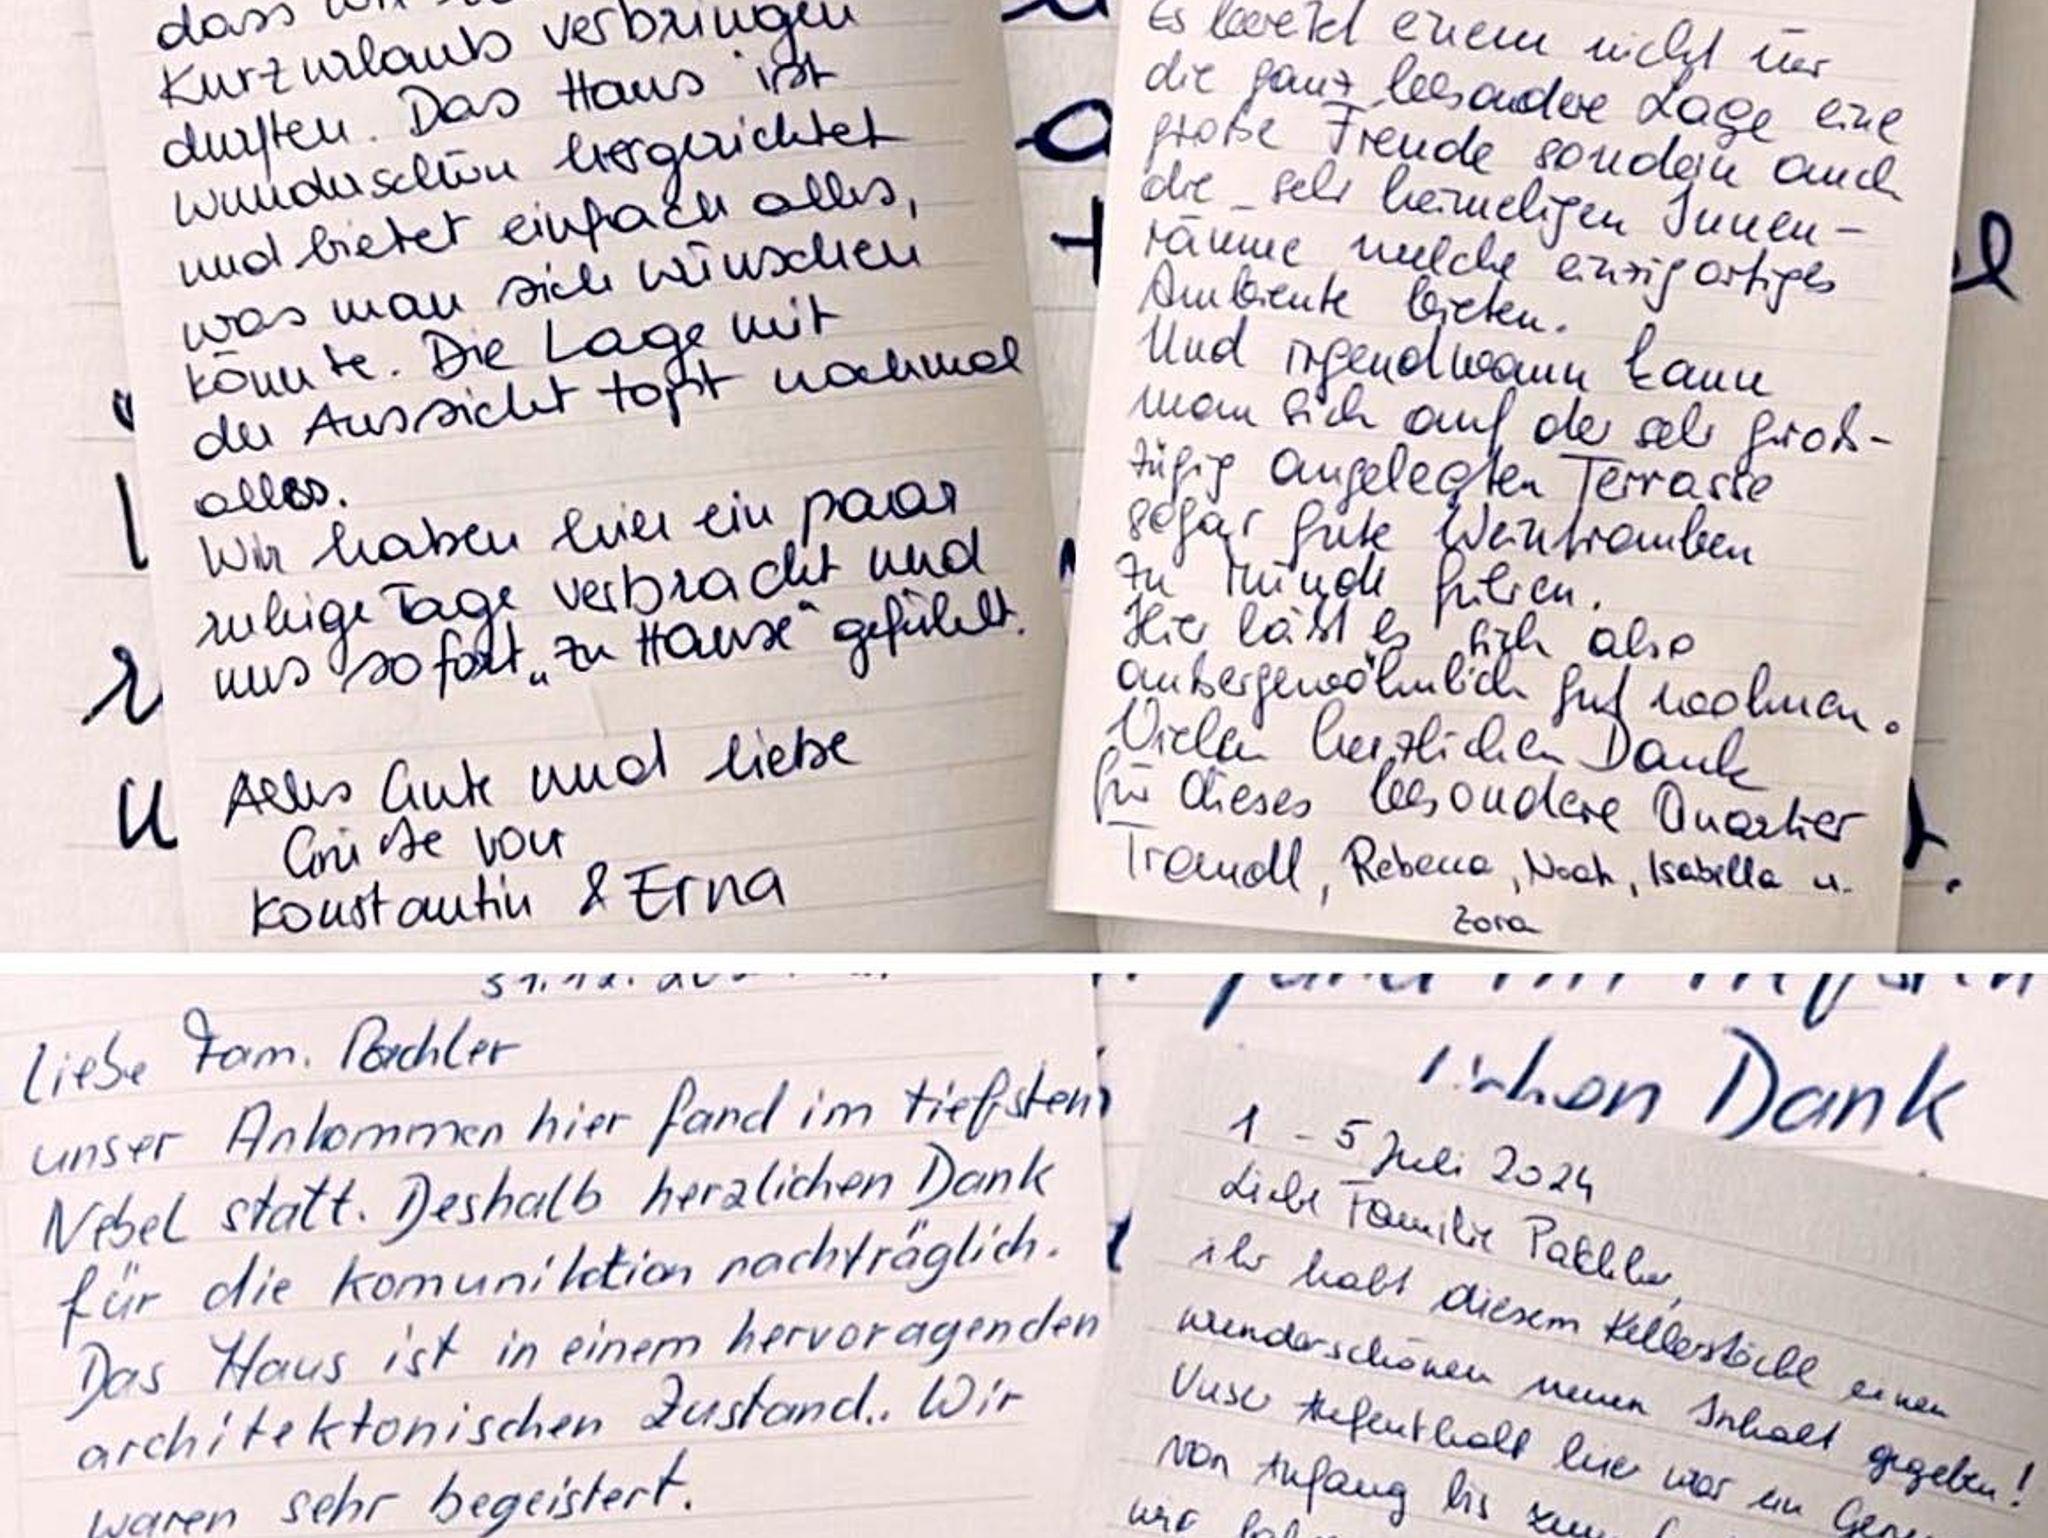 dass wir
Kurzurlaub verbringen
durften. Das Haus ist
wunderschön hergerichtet
und bietet einfach alles,
was man sich wünschen
könnte. Die Lage mit
der Aussicht topt nochmal
alles.
Wir haben hier ein paar
ruhige Tage verbracht und
uns sofort „zu Hause“ gefühlt.
Alles Gute und liebe
Grüße von
Konstantin & Erna
Es bereitet einem nicht nur
die ganz besondere Lage eine
große Freude sondern auch
die sehr heimeligen Innen-
räume welche einzigartiges
Ambiente bieten.
Und irgendwann kann
man sich auf der sehr groß-
zügig angelegten Terrasse
sogar gute Weintrauben
zu Munde führen.
Hier läßt es sich also
außergewöhnlich gut wohnen.
Vielen herzlichen Dank
für dieses besondere Quartier
Traudl, Rebecca, Noah, Isabella u.
Zora
31.12.
Liebe Fam. Pachler
unser Ankommen hier fand im tiefsten
Nebel statt. Deshalb herzlichen Dank
für die Komunikation nachträglich.
Das Haus ist in einem hervoragenden
architektonischen Zustand.. Wir
waren sehr begeistert.
Dank
1 - 5 Juli 2024
Liebe Familie Pachler,
ihr habt diesem Kellerstöckl einen
wunderschönen neuen Inhalt gegeben!
Unser Aufenthalt hier war ein
von Anfang bis zum
wir